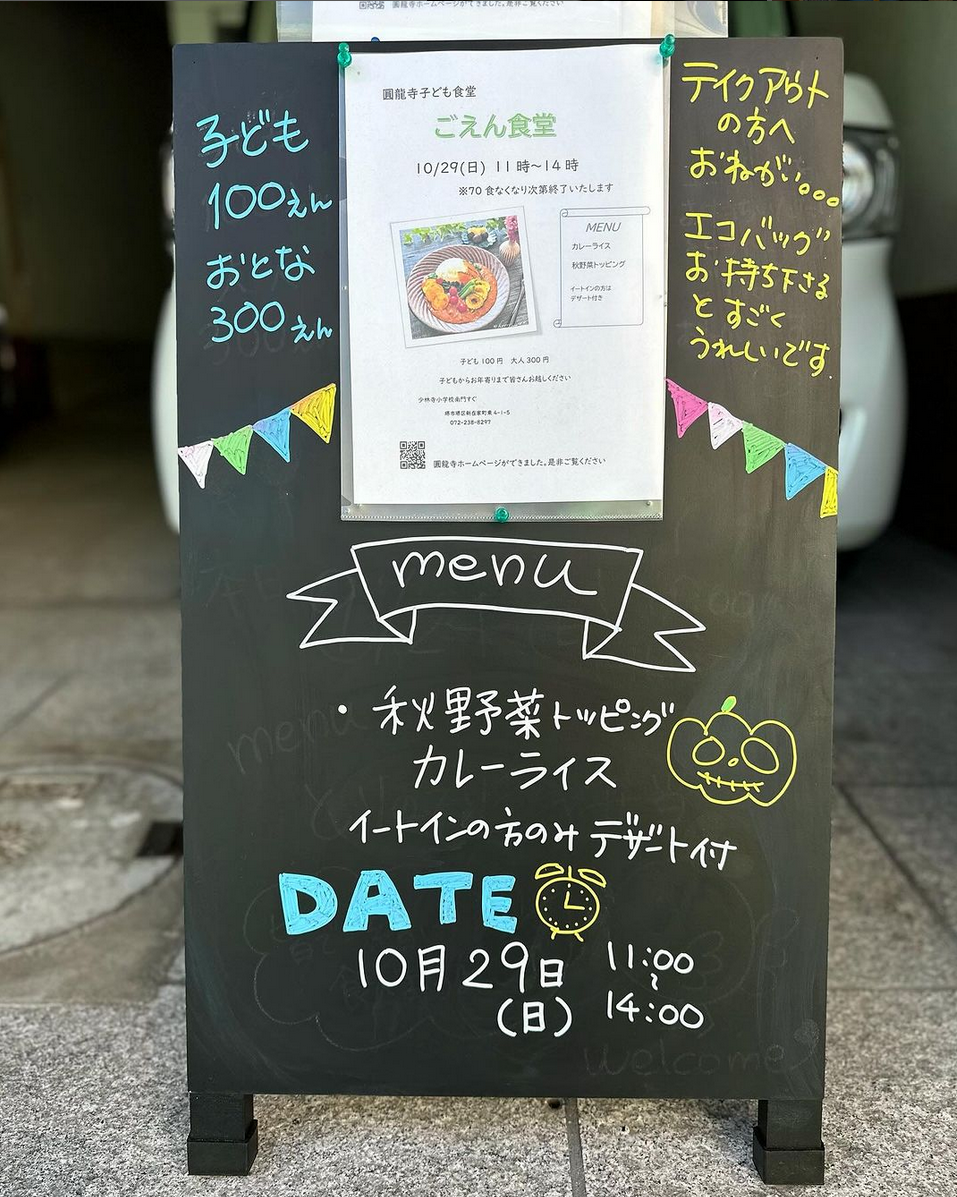 圓龍寺ホームページができました。是非ご覧ください
子ども
100えん
おとな
300えん
圓龍寺子ども食堂
ごえん食堂
10/29(日) 11時〜14時
※70食なくなり次第終了いたします
MENU
カレーライス
秋野菜トッピング
イートインの方は
デザート付き
子ども100円 大人300円
子どもからお年寄りまで皆さんお越しください
少林寺小学校南門すぐ
堺市堺区新在家町東4-1-5
072-238-8297
圓龍寺ホームページができました。是非ご覧ください
テイクアウト
の方へ
おねがい。。。
エコバッグ
お持ち下さる
とすごく
うれしいです.
menu
・秋野菜トッピング
カレーライス
イートインの方のみデザート付
DATE
10月29日
(日)
11:00
〜
14:00
welcome